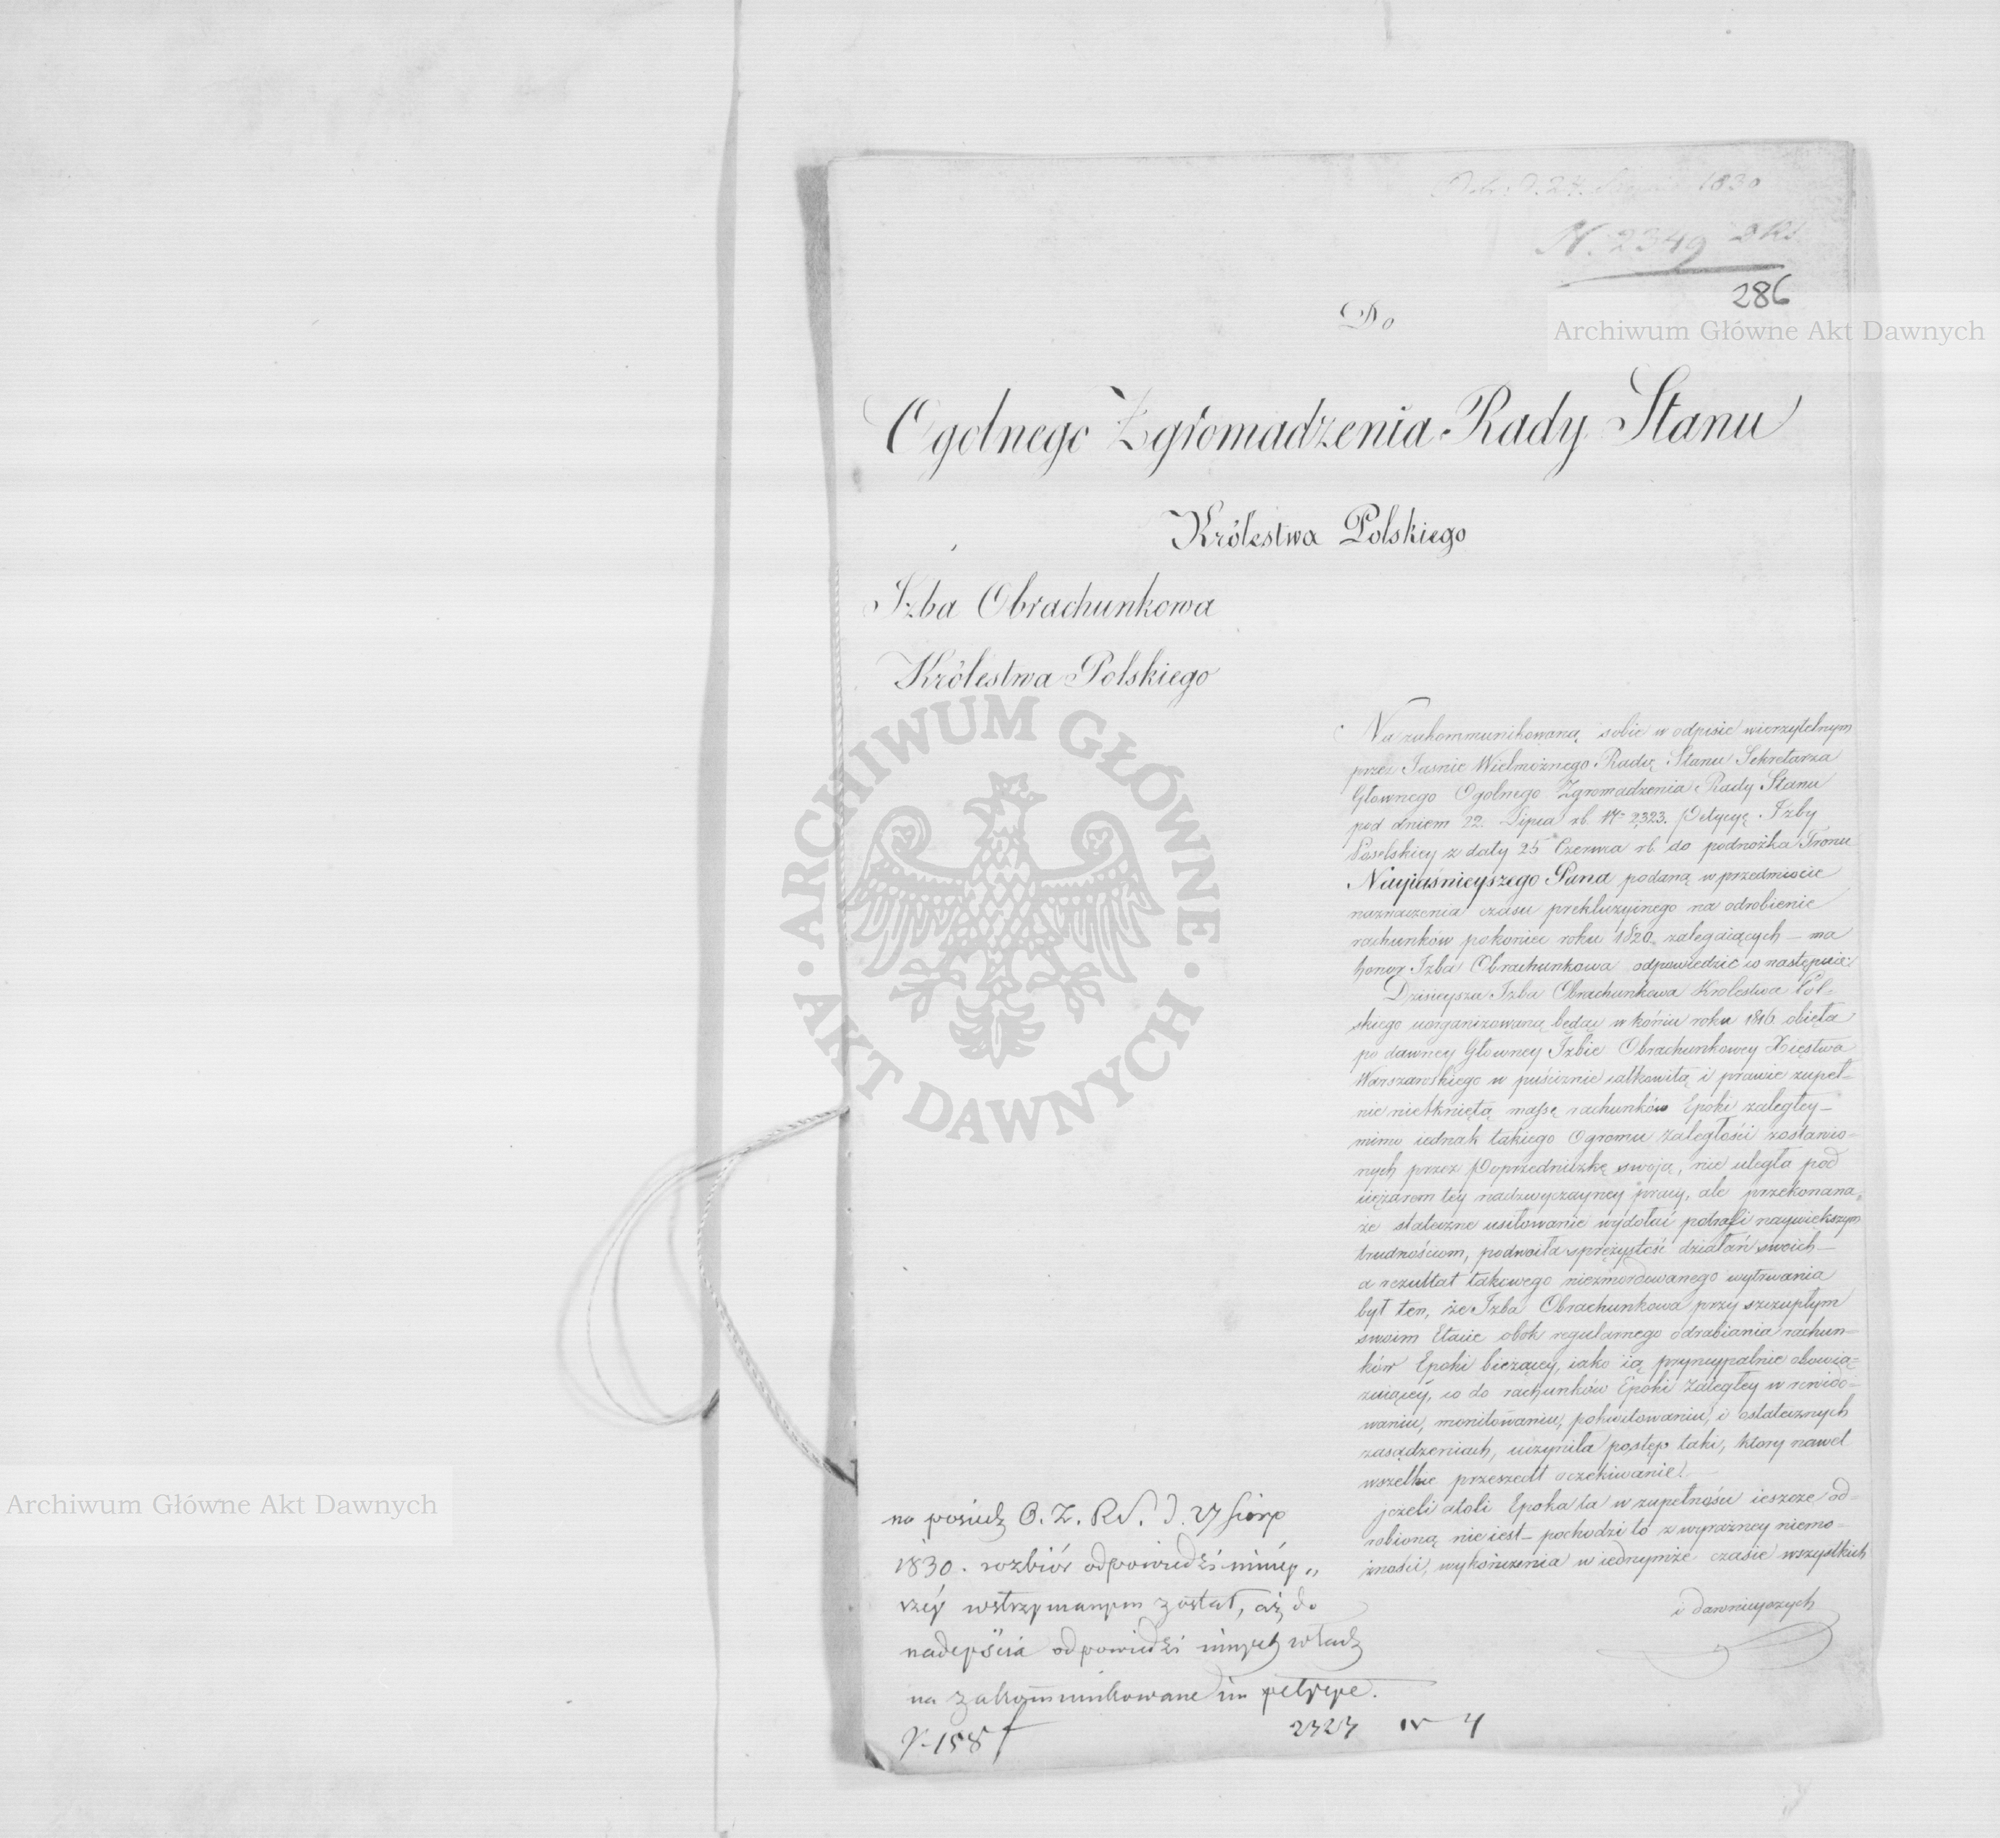 1830
N. 2349
286
Archiwum Główne Akt Dawnych
Do
Ogolnego Zgromadzenia Rady Stanu
Królestwa Polskiego
Izba Obrachunkowa
Królestwa Polskiego
Na zakommunikowaną sobie w odpisie wierzytelnym
przez Jaśnie Wielmożnego Radcę Stanu Sekretarza
Głownego Ogolnego Zgromadzenia Rady Stanu
pod dniem 22. Lipca rb. Nr 2,323. Petycyę Izby
Poselskiey z daty 25 Czerwca rb. do podnóżka Tronu
Nayjaśnieyszego Pana podaną w przedmiocie
naznaczenia czasu prekluzyjnego na odrobienie
rachunków pokoniec roku 1820. zalegaiących – ma
honor Izba Obrachunkowa odpowiedzić co następuie:
Dzisieysza Izba Obrachunkowa Krolestwa Pol-
skiego uorganizowaną będąc w końcu roku 1816 obięła
po dawney Głowney Izbie Obrachunkowey Xięstwa
Warszawskiego w puściznie całkowitą i prawie zupeł-
nie nietkniętą massę rachunków Epoki zaległey –
mimo iednak takiego Ogromu zaległości zostawio-
nych przez Poprzedniczkę swoją, nie uległa pod
ciężarem tey nadzwyczayney pracy, ale przekonana,
że stateczne usiłowanie wydołać potrafi naywiększym
trudnościom, podwoiła sprężystość działań swoich –
a rezultat takowego niezmordowanego wytrwania
był ten, że Izba Obrachunkowa przy szczupłym
swoim Etacie obok regularnego odrabiania rachun-
ków Epoki bieżącey, iako ią pryncypalnie obowią-
zuiącéy, co do rachunków Epoki Zaległey w rewido-
waniu, monitowaniu, pokwitowaniu, i ostatecznych
zasądzeniach, uczyniła postęp taki, ktory nawet
wszelkie przeszedł oczekiwanie.
Jeżeli atoli Epoka ta w zupełności ieszcze od-
robioną nie iest – pochodzi to z wyraźney niemo-
żności, wykończenia w iednymże czasie wszystkich
i dawnieyszych
na posiedz O. Z. R. S. D. 27 Sierp
1830. rozbiór odpowiedzi niniéy„
széy wstrzymanym został, aż do
nadeyścia odpowiedzi innych władz
na zakommunikowane im petycye.
2323 4
Archiwum Główne Akt Dawnych
ARCHIWUM GŁÓWNE · AKT DAWNYCH ·